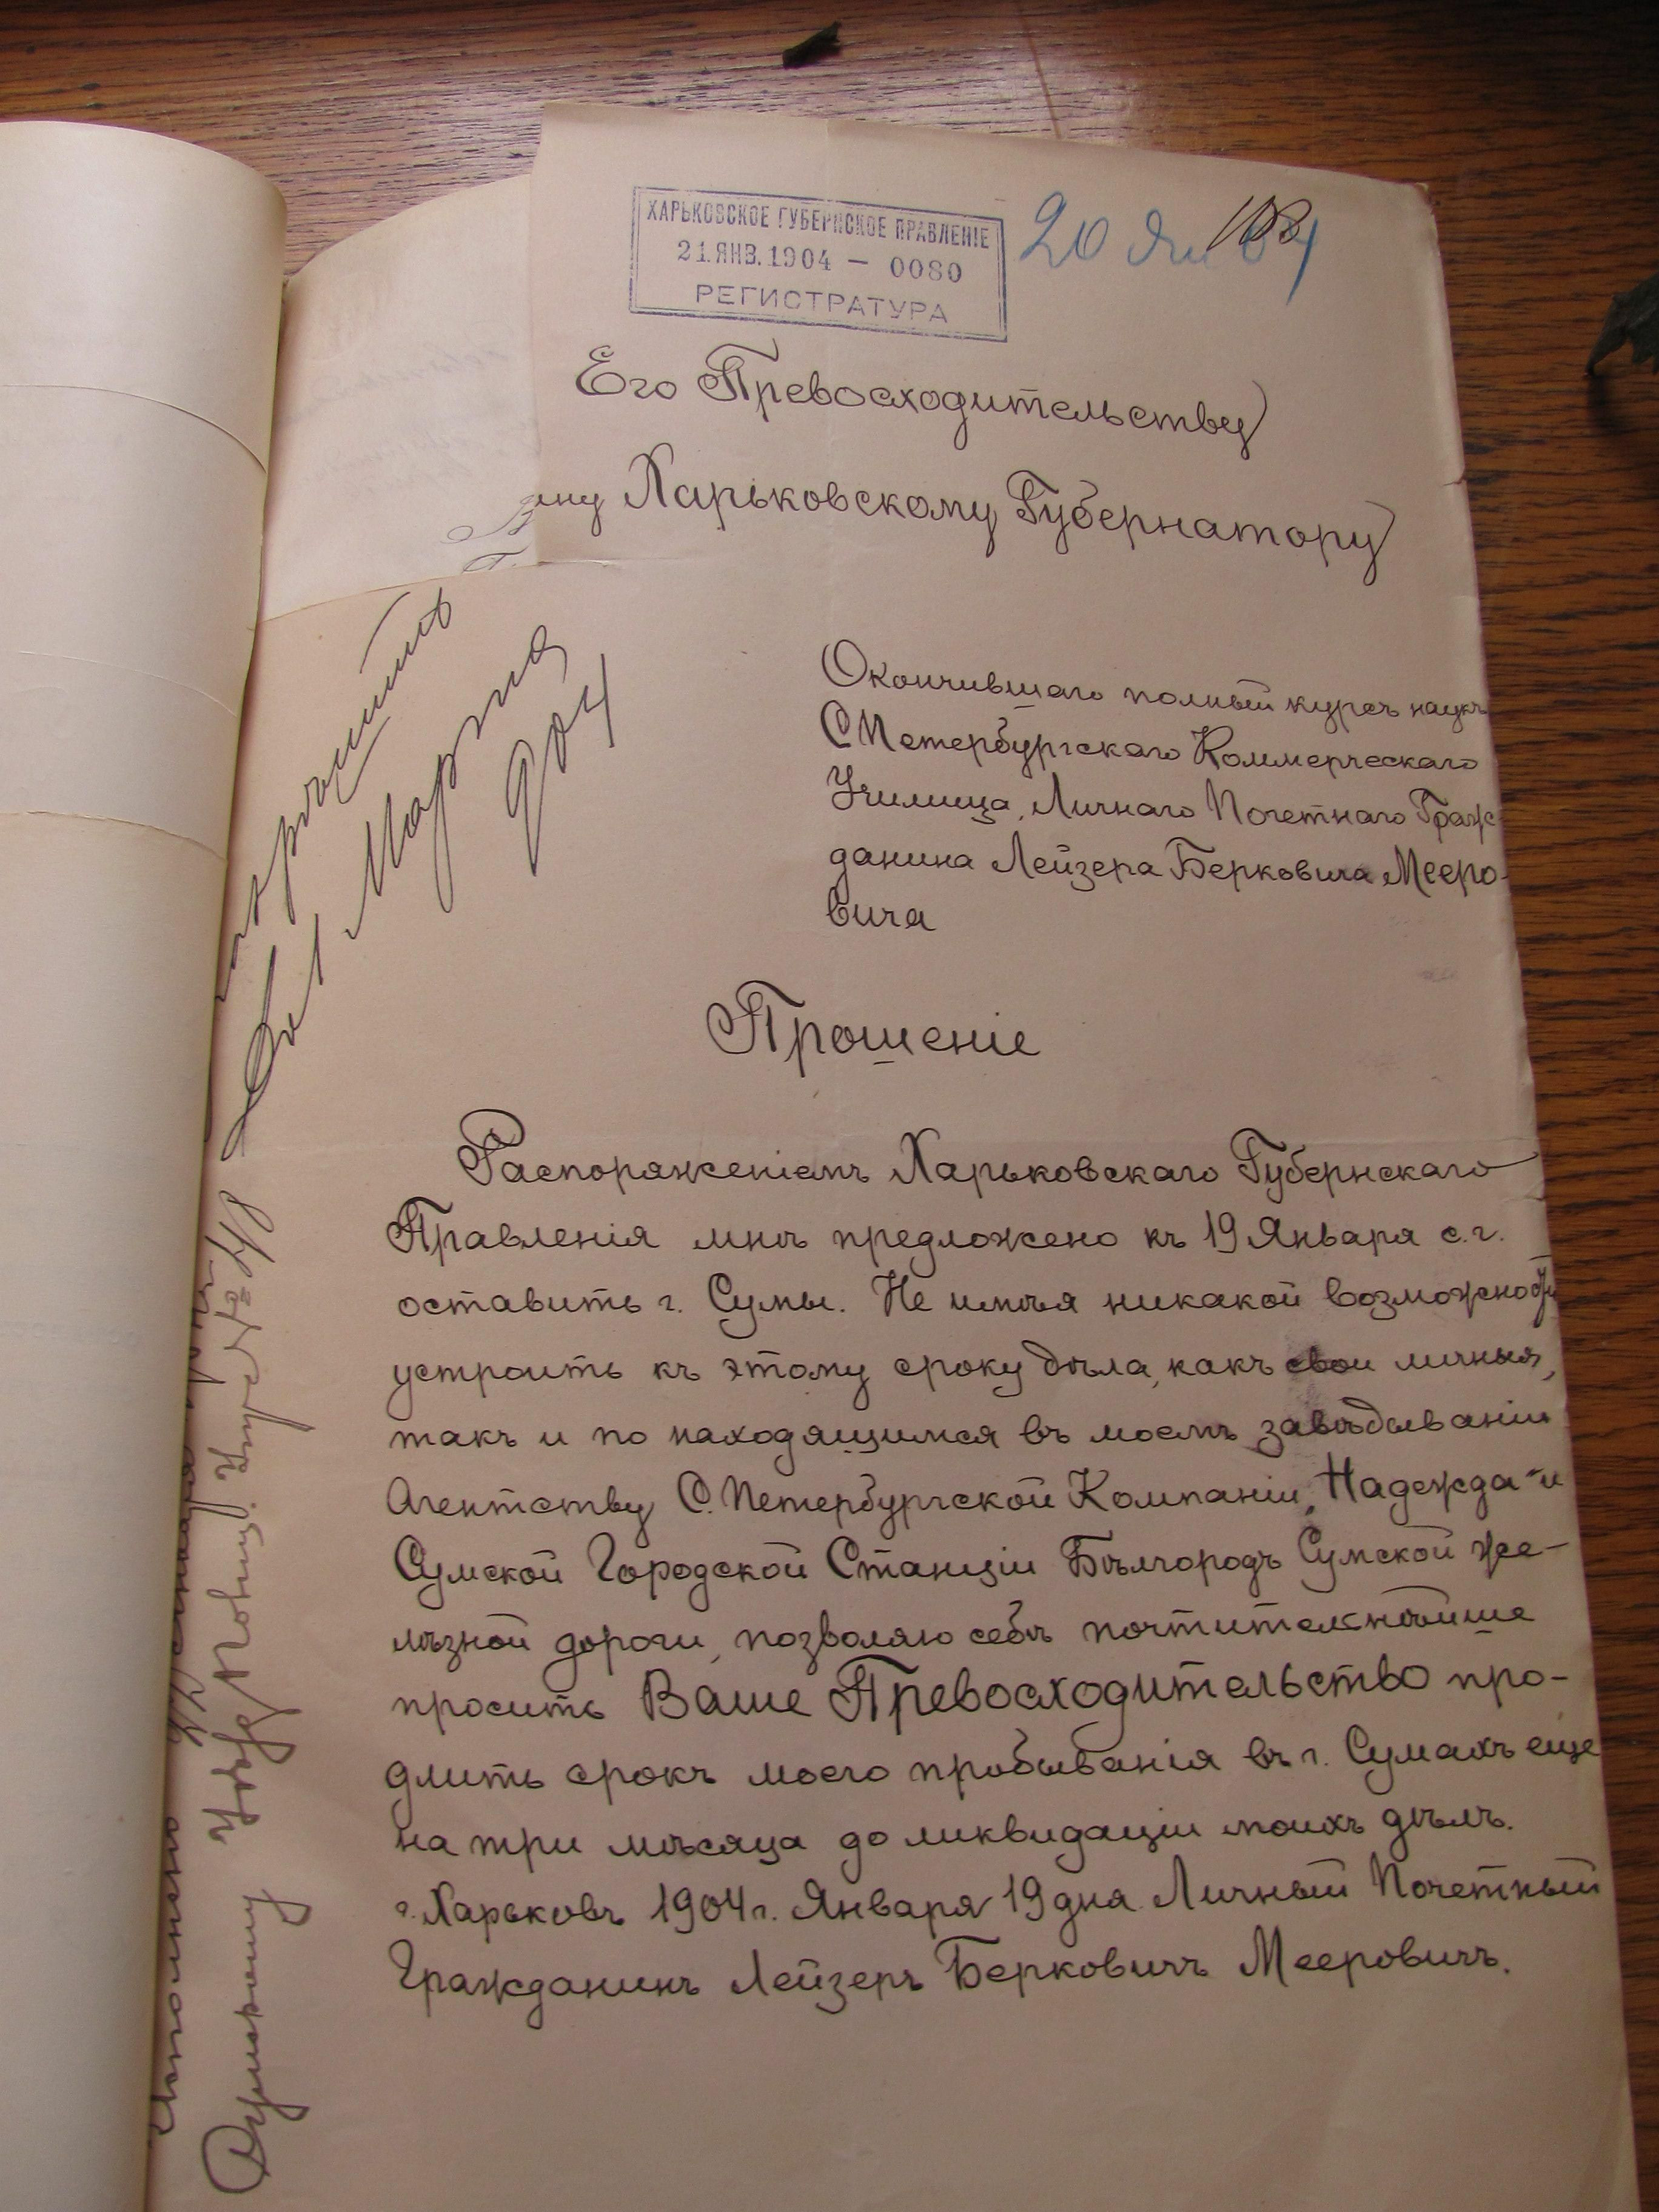 ХАРЬКОВСКОЕ ГУБЕРНСКОЕ ПРАВЛЕНІЕ
21.ЯНВ.1904 — 0080
РЕГИСТРАТУРА
20 Янв 04
Его Превосходительству
ину Харьковскому Губернатору
Окончившаго полный курсъ наукъ
С Петербургскаго Коммерческаго
Училища, Личнаго Почетнаго Граж
данина Лейзера Берковича Мееро-
вича
1 Марта
904
Прошеніе
Распоряженіемъ Харьковскаго Губернскаго
Правленія мнѣ предложено къ 19 Января с.г.
оставить г. Сумы. Не имѣя никакой возможности
устроить къ этому сроку дѣла, какъ свои личныя,
такъ и по находящимся въ моемъ завѣдываніи
Агентству С. Петербургской Компаніи „Надежда" и
Сумской Городской Станціи Бѣлгородъ Сумской же-
лѣзной дороги, позволяю себѣ почтительнѣйше
просить Ваше Превосходительство про-
длить срокъ моего пробыванія въ г. Сумахъ еще
на три мѣсяца до ликвидаціи моихъ дѣлъ.
г. Харьковъ 1904 г. Января 19 дня. Личный Почетный
Гражданинъ Лейзеръ Берковичъ Мееровичъ.
Сумскому